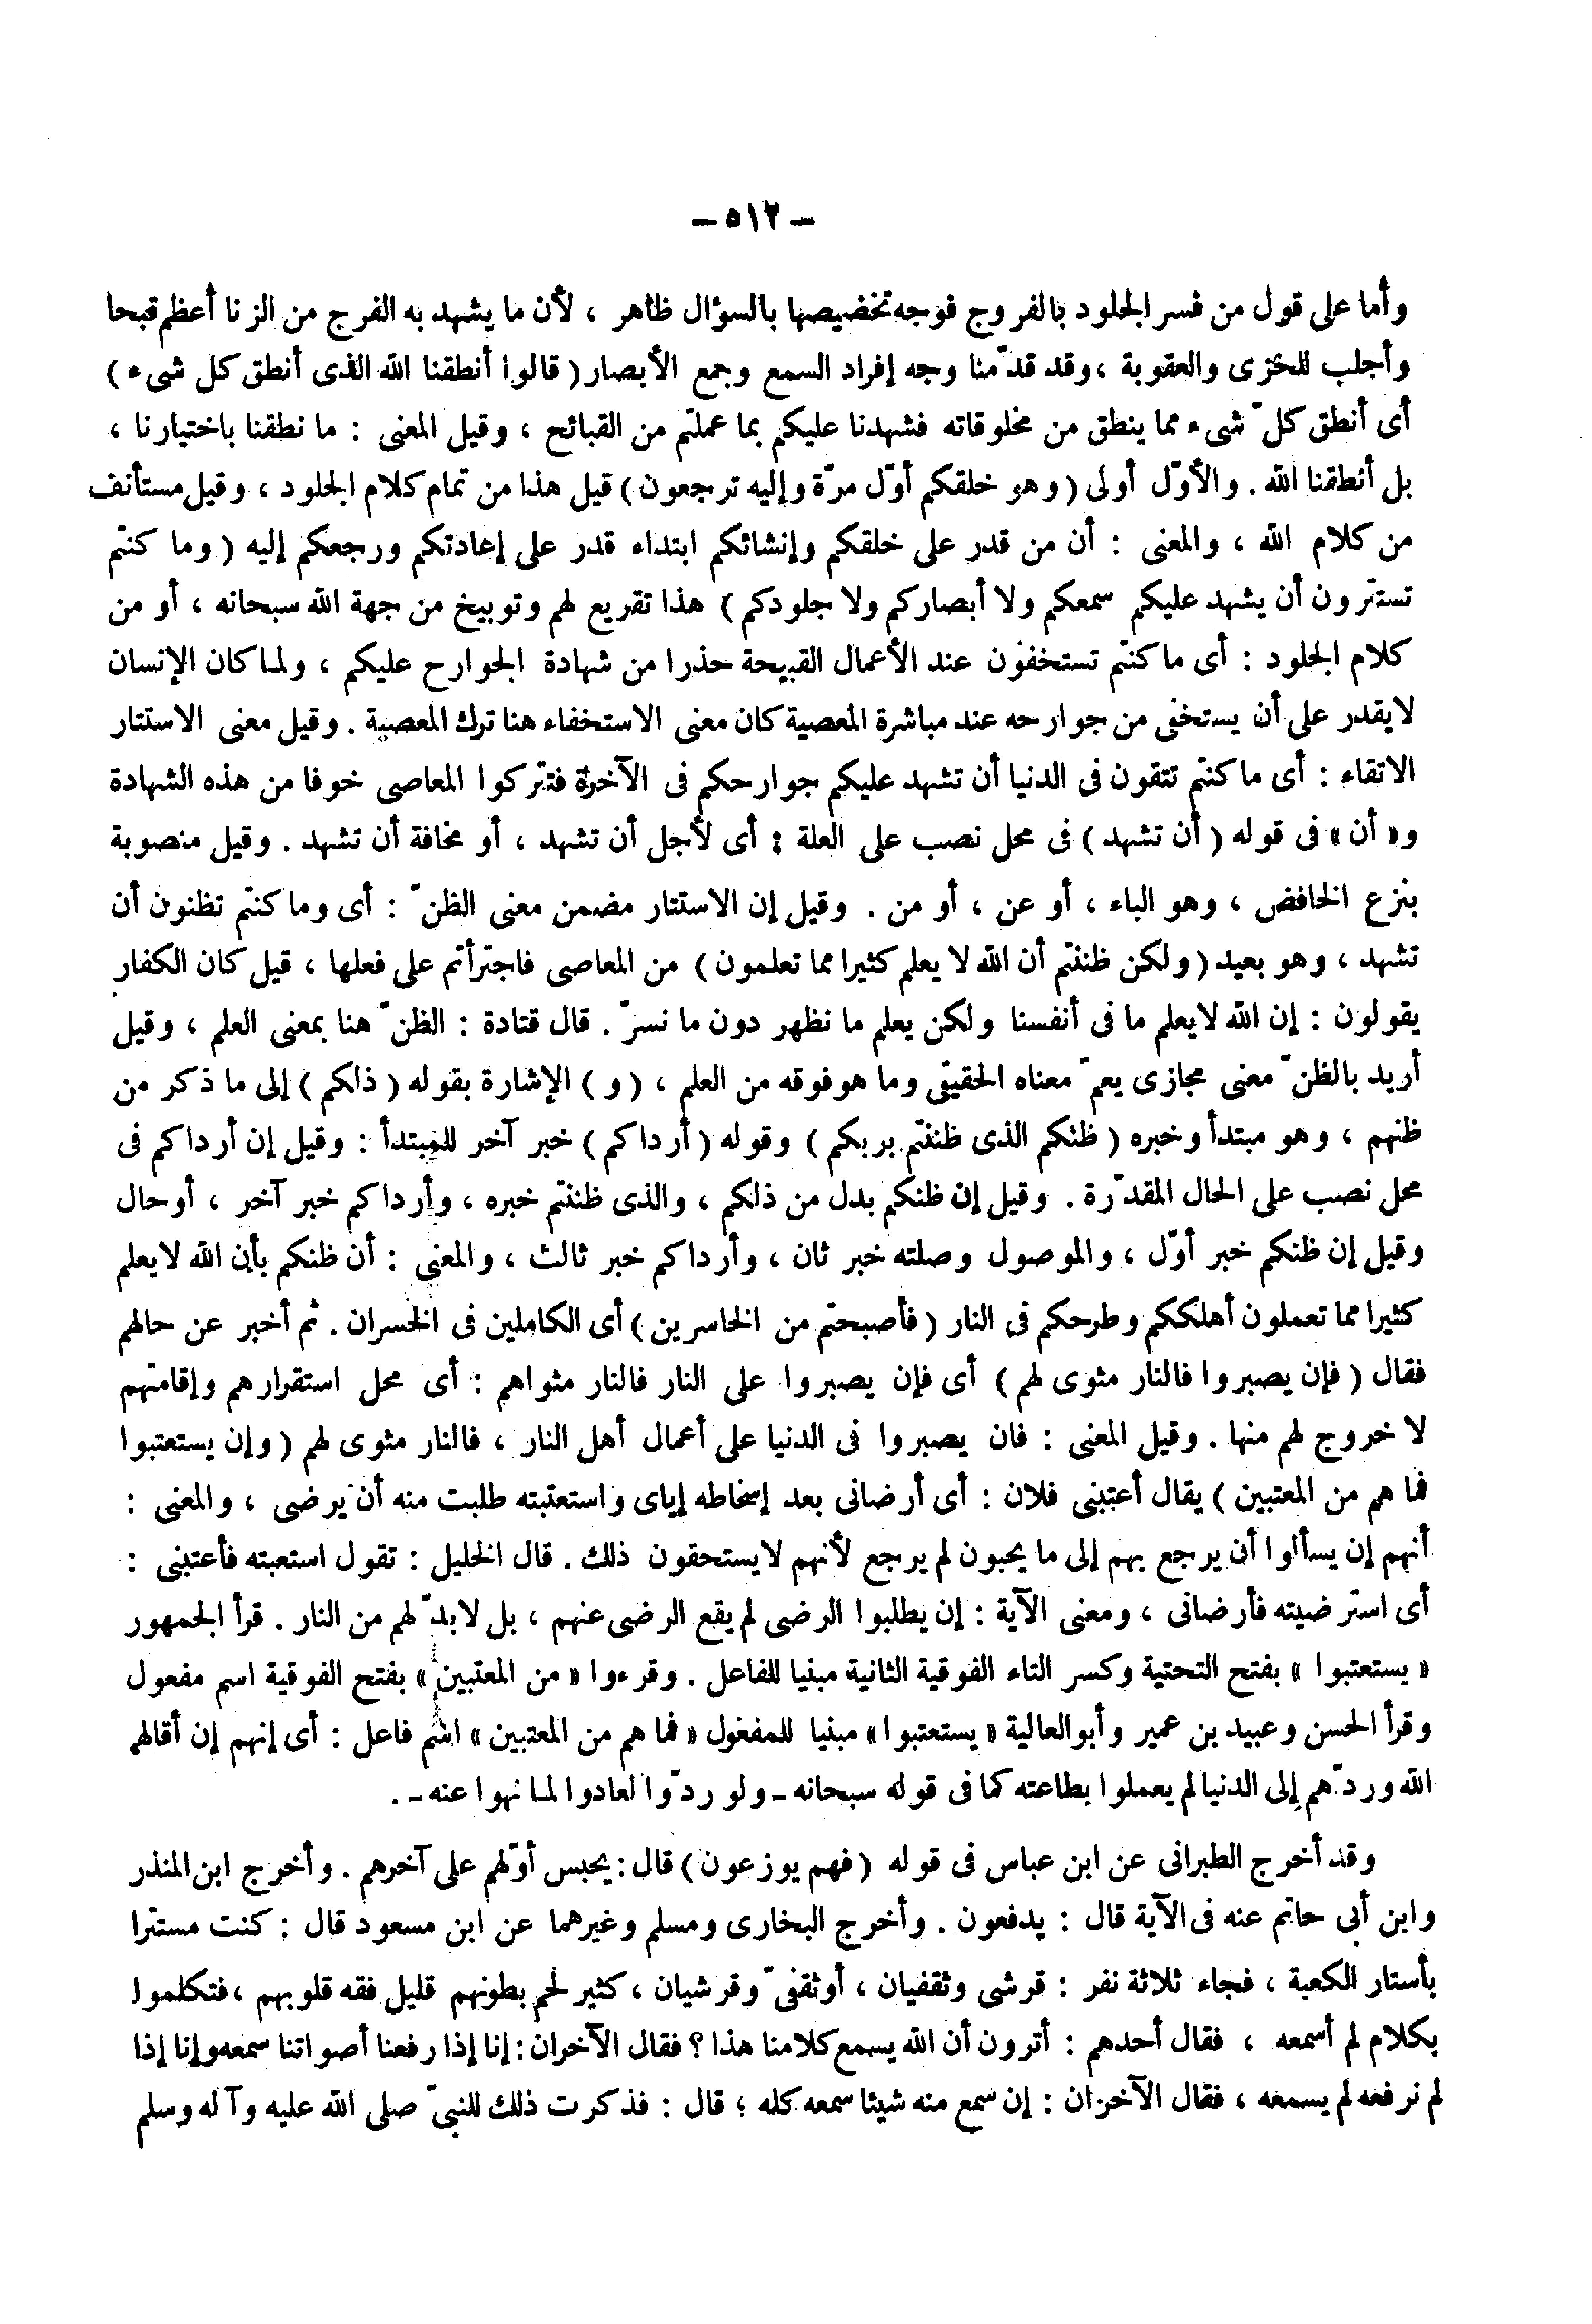 – ٥١٢ –
وأما على قول من فسر الجلود بالفروج فوجه تخصيصها بالسؤال ظاهر ، لأن ما يشهد به الفرج من الزنا أعظم قبحا
وأجلب للخزى والعقوبة ، وقد قدّمنا وجه إفراد السمع وجمع الأبصار ( قالوا أنطقنا الله الذى أنطق كل شىء )
أى أنطق كلّ شىء مما ينطق من مخلوقاته فشهدنا عليكم بما عملتم من القبائح ، وقيل المعنى : ما نطقنا باختيارنا ،
بل أنطقنا الله . والأوّل أولى ( وهو خلقكم أوّل مرّة وإليه ترجعون ) قيل هذا من تمام كلام الجلود ، وقيل مستأنف
من كلام الله ، والمعنى : أن من قدر على خلقكم وإنشائكم ابتداء قدر على إعادتكم ورجعكم إليه ( وما كنتم
تستترون أن يشهد عليكم سمعكم ولا أبصاركم ولا جلودكم ) هذا تقريع لهم وتوبيخ من جهة الله سبحانه ، أو من
كلام الجلود : أى ما كنتم تستخفون عند الأعمال القبيحة حذرا من شهادة الجوارح عليكم ، ولما كان الإنسان
لا يقدر على أن يستخفى من جوارحه عند مباشرة المعصية كان معنى الاستخفاء هنا ترك المعصية . وقيل معنى الاستتار
الاتقاء : أى ما كنتم تتقون فى الدنيا أن تشهد عليكم جوارحكم فى الآخرة فتتركوا المعاصى خوفا من هذه الشهادة
و« أن » فى قوله ( أن تشهد ) فى محل نصب على العلة : أى لأجل أن تشهد ، أو مخافة أن تشهد . وقيل منصوبة
بنزع الخافض ، وهو الباء ، أو عن ، أو من . وقيل إن الاستتار مضمن معنى الظنّ : أى وما كنتم تظنون أن
تشهد ، وهو بعيد ( ولكن ظننتم أن الله لا يعلم كثيرا مما تعلمون ) من المعاصى فاجترأتم على فعلها ، قيل كان الكفار
يقولون : إن الله لايعلم ما فى أنفسنا ولكن يعلم ما نظهر دون ما نسرّ . قال قتادة : الظنّ هنا بمعنى العلم ، وقيل
أريد بالظنّ معنى مجازى يعمّ معناه الحقيقى وما هو فوقه من العلم ، ( و ) الإشارة بقوله ( ذلكم ) إلى ما ذكر من
ظنهم ، وهو مبتدأ وخبره ( ظنكم الذى ظننتم بربكم ) وقوله ( أرداكم ) خبر آخر للمبتدأ : وقيل إن أرداكم فى
محل نصب على الحال المقدّرة . وقيل إن ظنكم بدل من ذلكم ، والذى ظننتم خبره ، وأرداكم خبر آخر ، أو حال
وقيل إن ظنكم خبر أوّل ، والموصول وصلته خبر ثان ، وأرداكم خبر ثالث ، والمعنى : أن ظنكم بأن الله لايعلم
كثيرا مما تعملون أهلككم وطرحكم فى النار ( فأصبحتم من الخاسرين ) أى الكاملين فى الخسران . ثم أخبر عن حالهم
فقال ( فإن يصبروا فالنار مثوى لهم ) أى فإن يصبروا على النار فالنار مثواهم : أى محل استقرارهم وإقامتهم
لا خروج لهم منها . وقيل المعنى : فان يصبروا فى الدنيا على أعمال أهل النار ، فالنار مثوى لهم ( وإن يستعتبوا
فما هم من المعتبين ) يقال أعتبنى فلان : أى أرضانى بعد إسخاطه إياى واستعتبته طلبت منه أن يرضى ، والمعنى :
أنهم إن يسألوا أن يرجع بهم إلى ما يحبون لم يرجع لأنهم لايستحقون ذلك . قال الخليل : تقول استعبته فأعتبنى :
أى استرضيته فأرضانى ، ومعنى الآية : إن يطلبوا الرضى لم يقع الرضى عنهم ، بل لابدّ لهم من النار . قرأ الجمهور
« يستعتبوا » بفتح التحتية وكسر التاء الفوقية الثانية مبنيا للفاعل . وقرءوا « من المعتبين » بفتح الفوقية اسم مفعول
وقرأ الحسن وعبيد بن عمير وأبو العالية « يستعتبوا » مبنيا للمفعول « فما هم من المعتبين » اسم فاعل : أى إنهم إن أقالهم
الله وردّهم إلى الدنيا لم يعملوا بطاعته كما فى قوله سبحانه ـ ولو ردّوا لعادوا لما نهوا عنه ـ .
وقد أخرج الطبرانى عن ابن عباس فى قوله ( فهم يوزعون ) قال : يحبس أوّلهم على آخرهم . وأخرج ابن المنذر
وابن أبى حاتم عنه فى الآية قال : يدفعون . وأخرج البخارى ومسلم وغيرهما عن ابن مسعود قال : كنت مستترا
بأستار الكعبة ، فجاء ثلاثة نفر : قرشى وثقفيان ، أو ثقفىّ وقرشيان ، كثير لحم بطونهم قليل فقه قلوبهم ، فتكلموا
بكلام لم أسمعه ، فقال أحدهم : أترون أن الله يسمع كلامنا هذا ؟ فقال الآخران : إنا إذا رفعنا أصواتنا سمعه وإنا إذا
لم نرفعه لم يسمعه ، فقال الآخران : إن سمع منه شيئا سمعه كله ؛ قال : فذكرت ذلك للنبىّ صلى الله عليه وآله وسلم